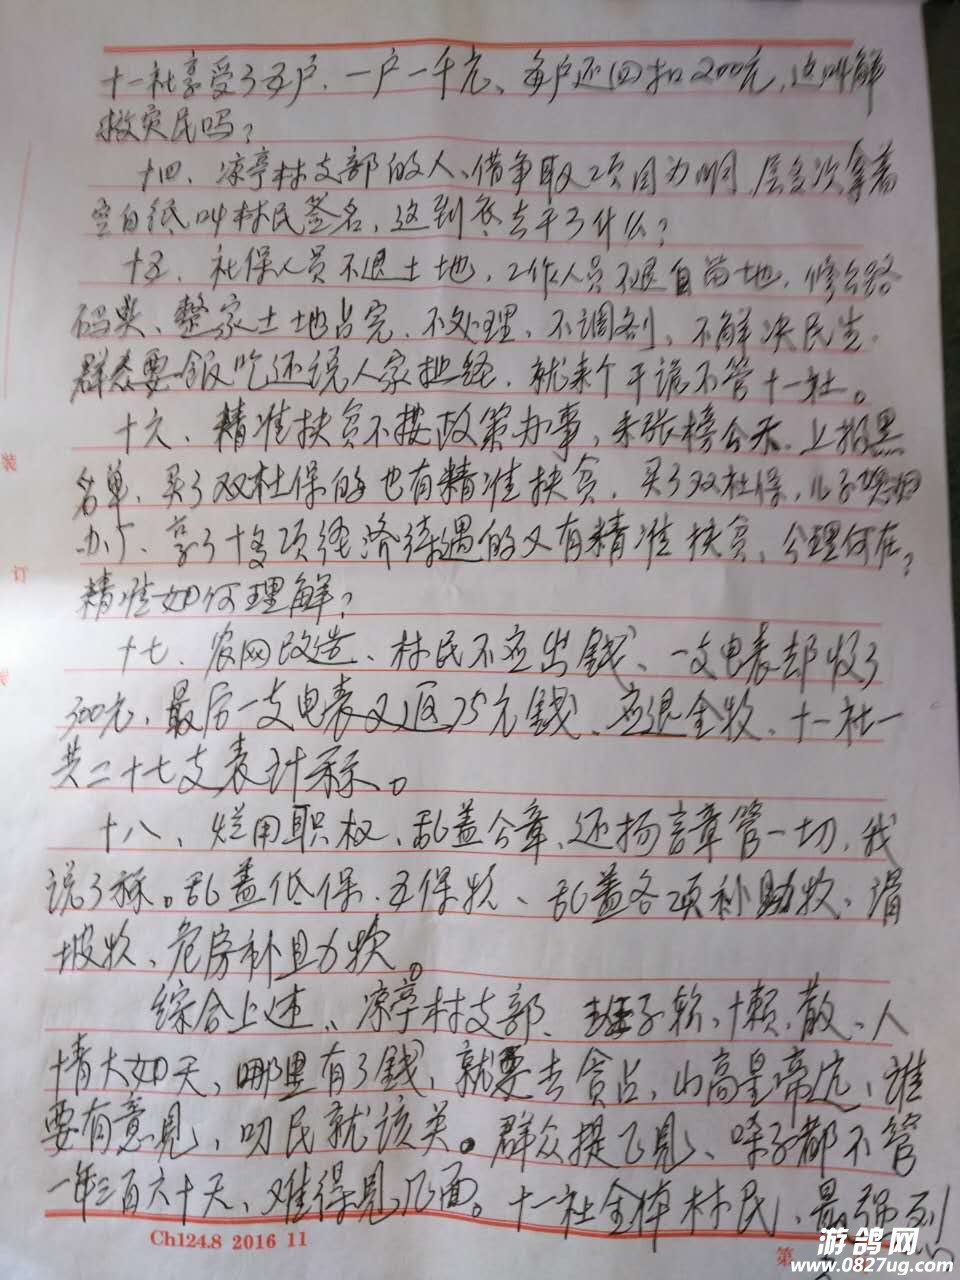 十一社享受了五户，一户一千元、每户还回扣200元，这叫解
救灾民吗？
十四、凉亭村支部的人、借争取项目为明，层多次拿着
空白纸叫村民签名，这到底去干了什么？
十五、社保人员不退土地，工作人员不退自留地，修公路
码头、整家土地占完、不处理、不调剂、不解决民生，
群众要饭吃还说人家扯经，就来个干诡不管十一社。
十六、精准扶贫不按政策办事，未张榜公示、上报黑
名单、买了双社保的也有精准扶贫，买了双社保，儿子
办厂、享了十多项经济待遇的又有精准扶贫、公理何在？
精准如何理解？
十七、农网改造、村民不应出钱、一支电表却收了
300元，最后一支电表又返75元钱、应退全款、十一社一
共二十七支表计
十八、烂用职权、乱盖公章、还扬言章管一切，我
说了算。乱盖低保、五保款、乱盖各项补助款、滑
坡款、危房补助款。
综合上述、凉亭村支部、班子软、懒、散、人
情大如天，哪里有了钱，就要去贪占，山高皇帝远，谁
要有意见，叨民就该关。群众提意见、啥子都不管
一年三百六十天、难得见几面。十一社全体村民、最强烈
Ch124.8 2016 11
第
游鸽网
www.0827ug.com